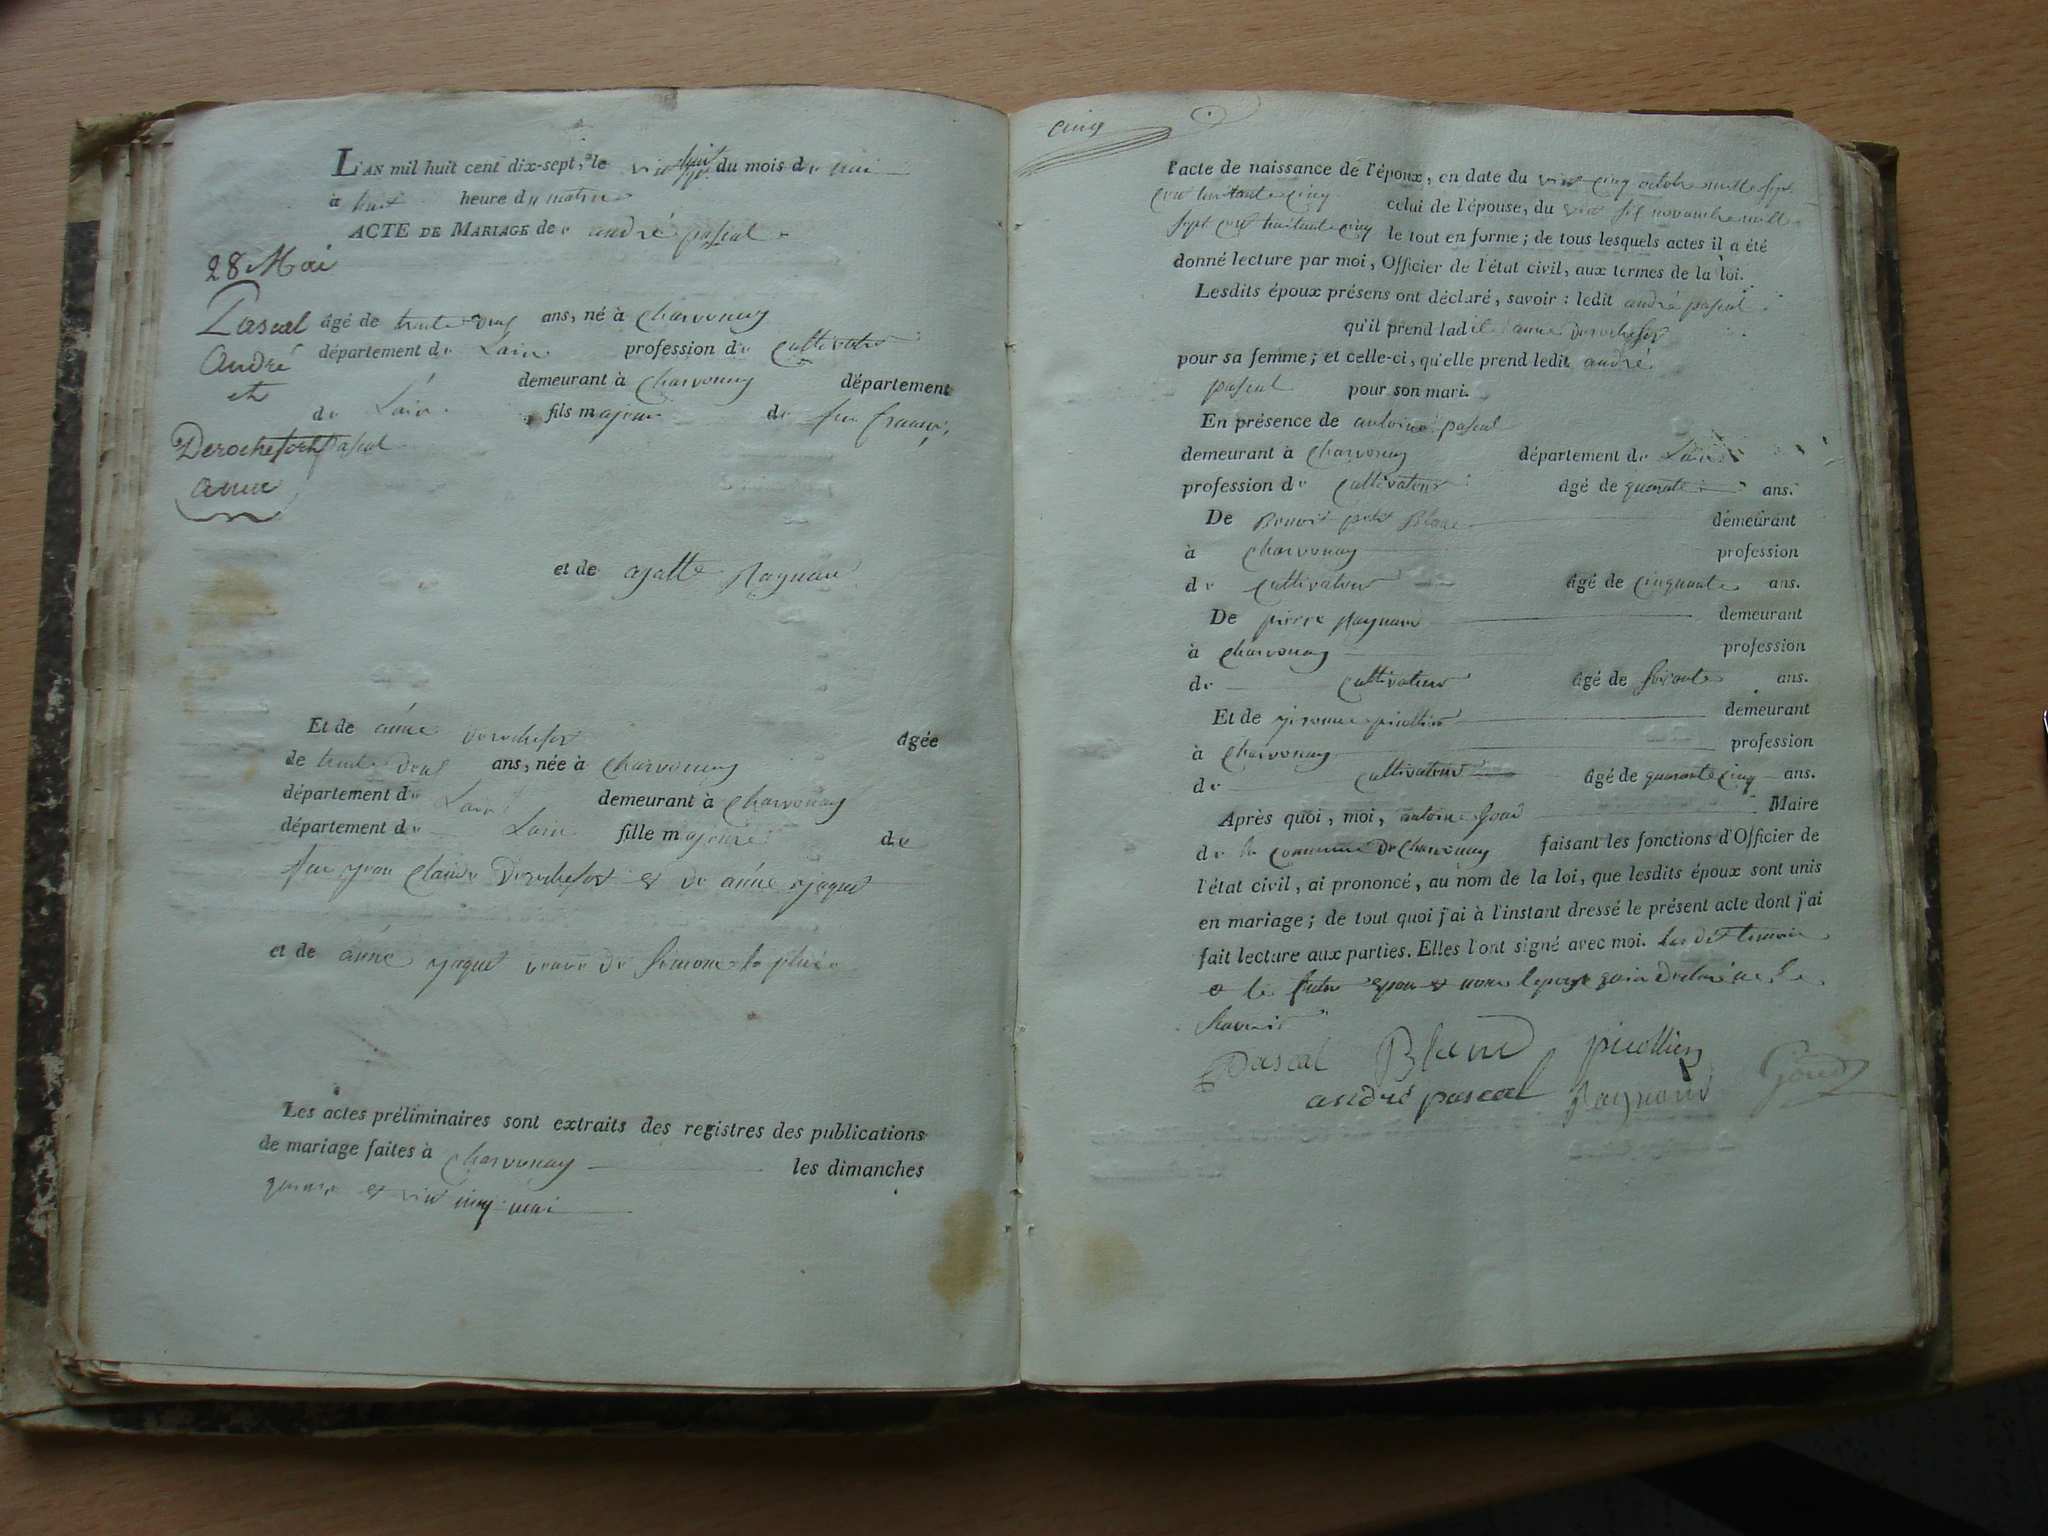 L'AN mil huit cent dix-sept, le vint huit du mois de mai
à huit heure du matin
ACTE DE MARIAGE de andré pascal
28 Mai
Pascal
André
et
Derochefort
anne
âgé de trente deux ans, né à Charvonay
département de Lain profession de Cultivateur
demeurant à Charvonay département
de Lain fils majeur de feu francois
pascal
et de agatte Raynaud
Et de anne derochefor âgée
de trente deux ans, née à Charvonay
département de Lain demeurant à Charvonay
département de Lain fille majeure de
feu jean Claude Derochefor et de anne jaquet
et de anne jaquet veuve de
Les actes préliminaires sont extraits des registres des publications
de mariage faites à Charvonay les dimanches
et vint cinq mai
cinq
l'acte de naissance de l'époux, en date du vint cinq octobre mille sept
cent huitante cinq celui de l'épouse, du vint six novambre mill
sept cent huitante cinq le tout en forme; de tous lesquels actes il a été
donné lecture par moi, Officier de l'état civil, aux termes de la loi.
Lesdits époux présens ont déclaré, savoir: ledit andré pascal
qu'il prend ladite anne derochefor
pour sa femme; et celle-ci, qu'elle prend ledit andré
pascal pour son mari.
En présence de antoine pascal
demeurant à Charvonay département de Lain
profession de Cultivateur âgé de quarante ans.
De Benoit petit Blanc demeurant
à Charvonay profession
de Cultivateur âgé de cinquante ans.
De pierre Raynaud demeurant
à Charvonay profession
de cultivateur âgé de soixante ans.
Et de demeurant
à Charvonay profession
de cultivateur âgé de quarante cinq ans.
Après quoi, moi, antoine Goud Maire
de la commune de Charvonay faisant les fonctions d'Officier de
l'état civil, ai prononcé, au nom de la loi, que lesdits époux sont unis
en mariage; de tout quoi j'ai à l'instant dressé le présent acte dont j'ai
fait lecture aux parties. Elles l'ont signé avec moi. les dit temoin
et le epoux et non lepouse
Pascal Blanc picollien
andré pascal Raynaud Goud